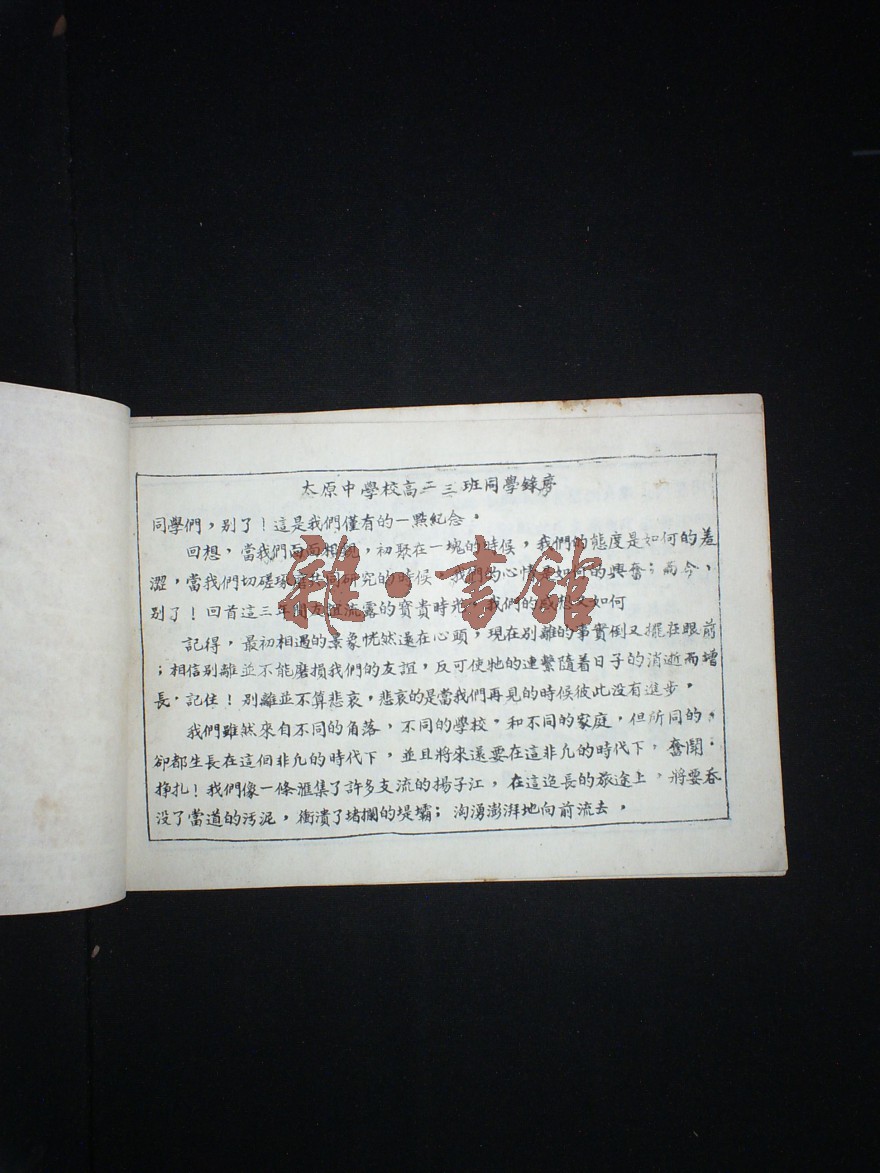 太原中學校高二三班同學錄序
同學們，別了！這是我們僅有的一點紀念。
回想，當我們面面相覷，初聚在一塊的時候，我們的態度是如何的羞
澀，當我們切磋琢磨共同研究的時候，我們的心情是如何的興奮；而今，
別了！回首這三年間友誼流露的寶貴時光，我們的感想又如何
記得，最初相遇的景象恍然還在心頭，現在別離的事實倒又擺在眼前
；相信別離並不能磨損我們的友誼，反可使牠的連繫隨着日子的消逝而增
長．記住！別離並不算悲哀，悲哀的是當我們再見的時候彼此没有進步。
我們雖然來自不同的角落，不同的學校，和不同的家庭，但所同的，
卻都生長在這個非凢的時代下，並且將來還要在這非凢的時代下，奮鬭．
掙扎！我們像一條滙集了許多支流的揚子江，在這迢長的旅途上，將要吞
没了當道的污泥，衝潰了堵攔的堤壩；洶湧澎湃地向前流去，
雜·書館